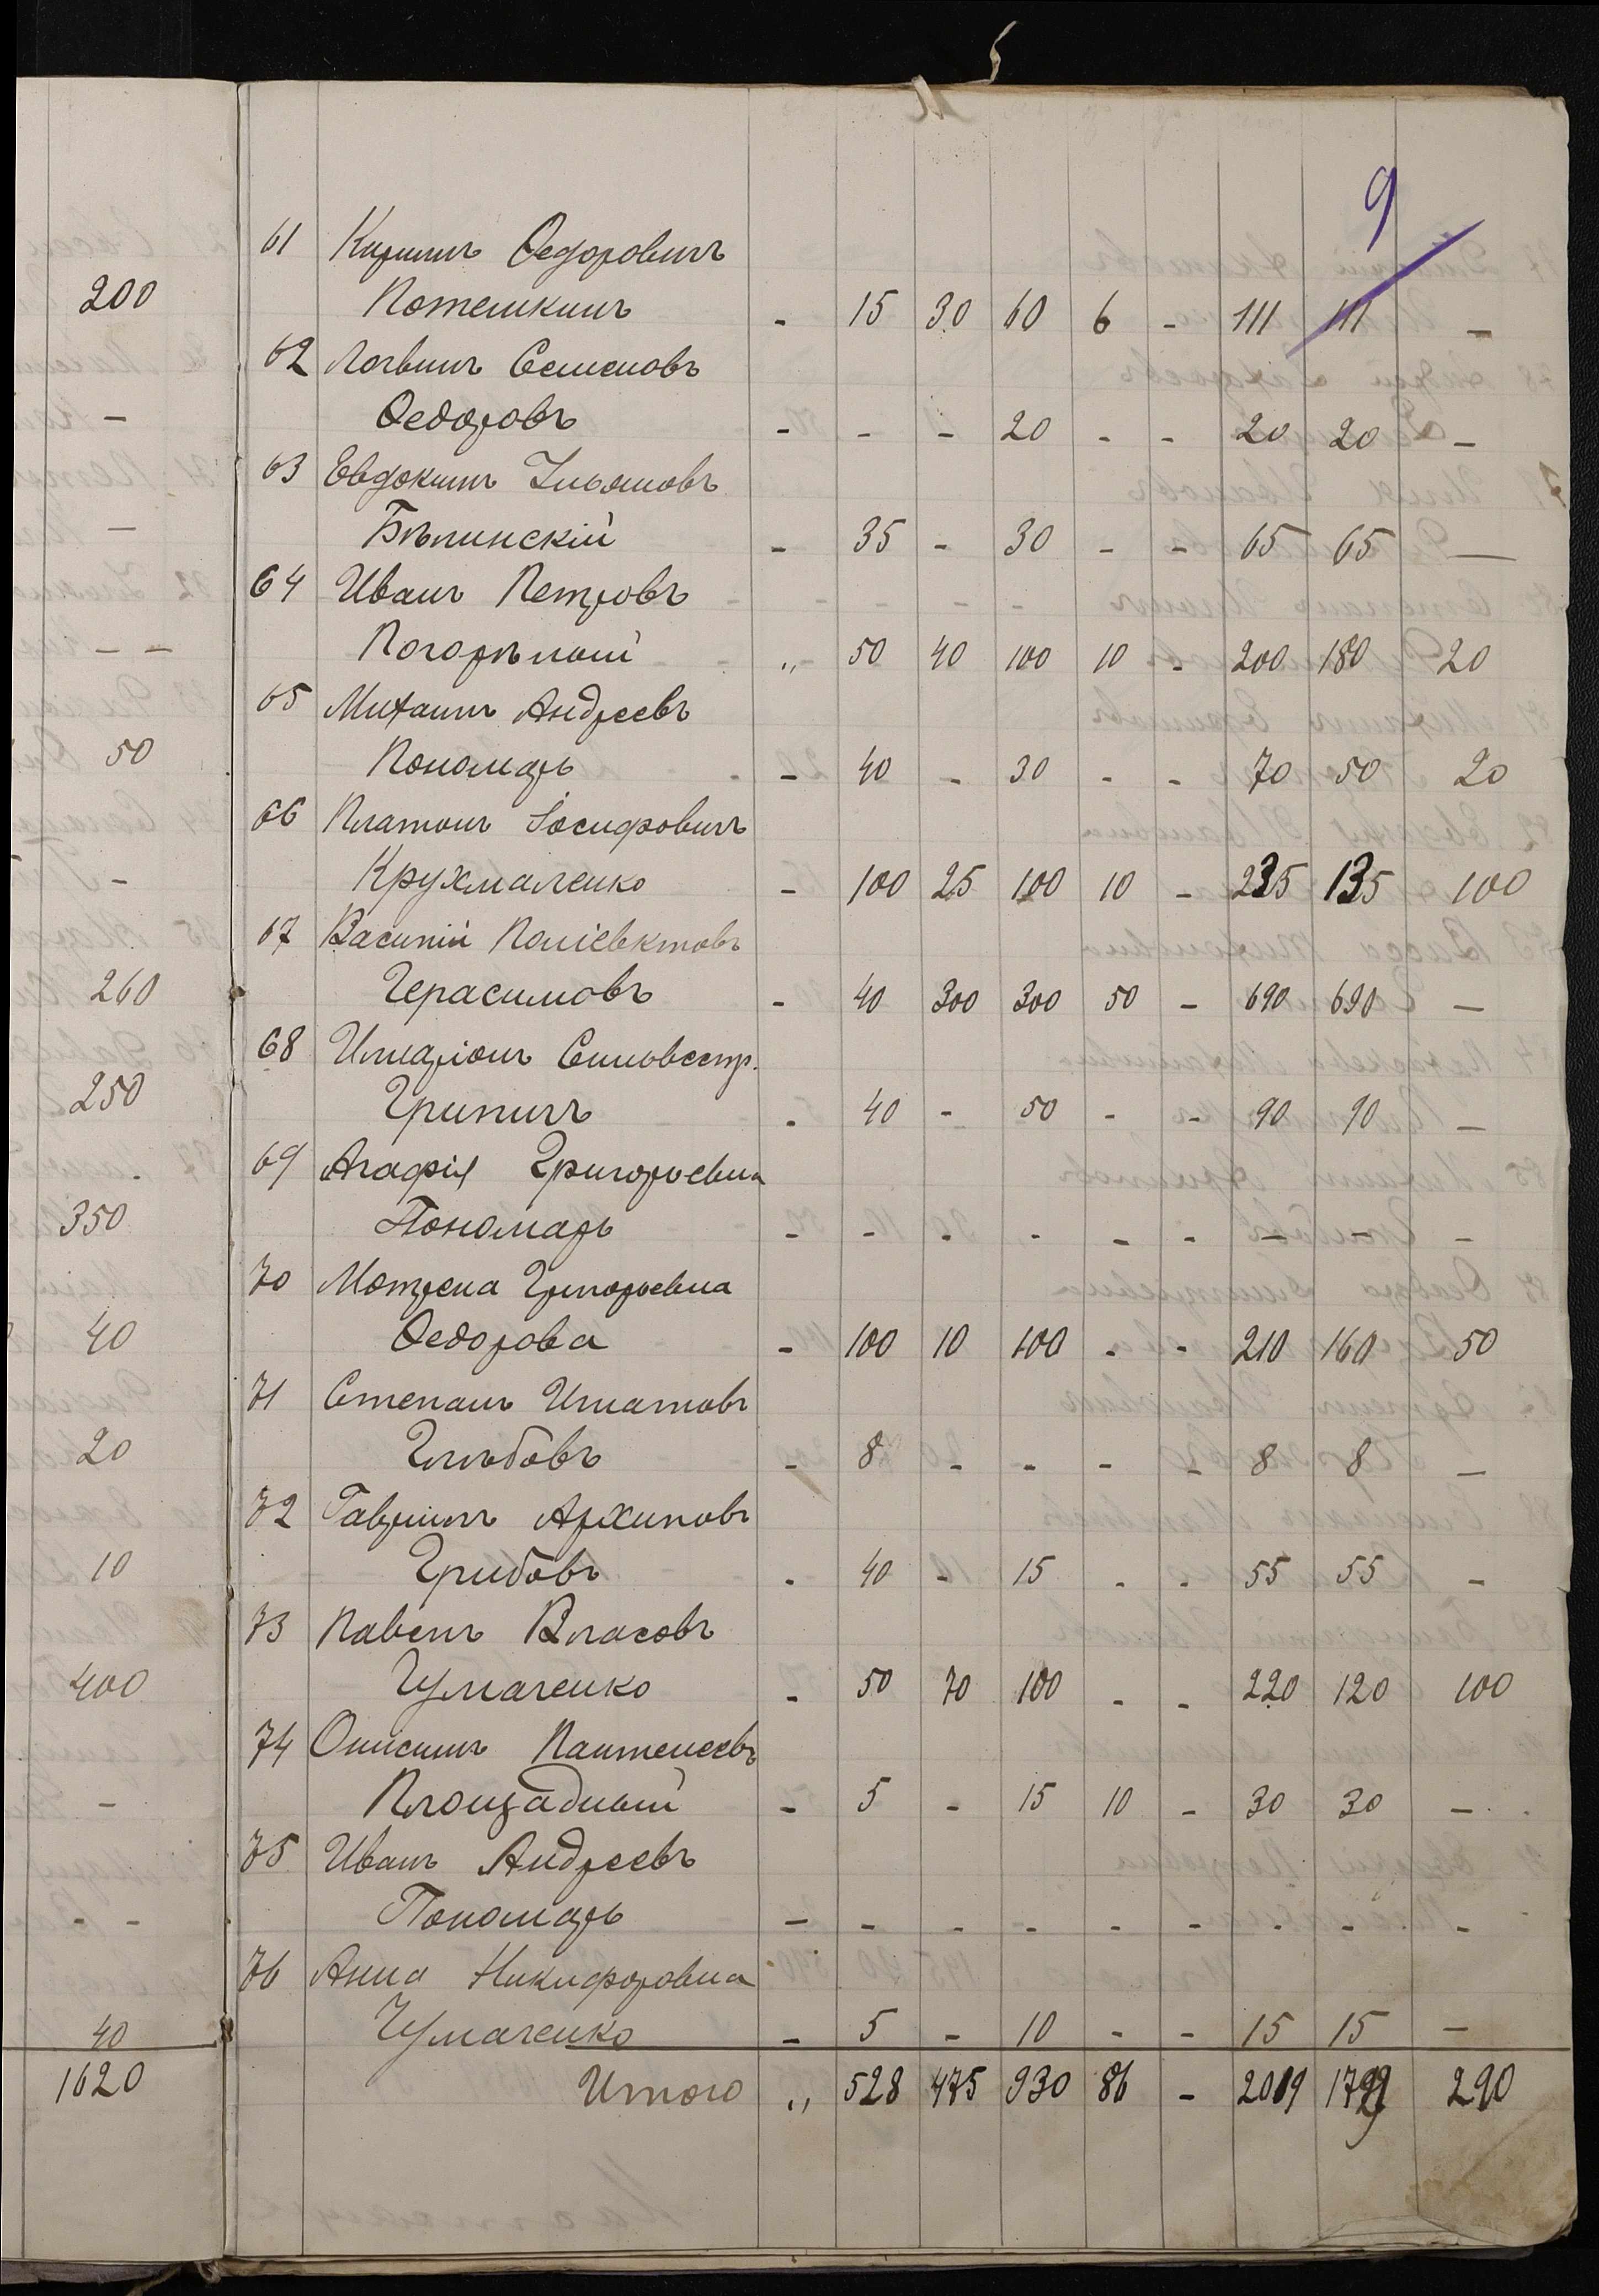 9
200
-
-
- -
50
-
260
250
350
40
20
10
400
-
- -
40
1620
61 Кирилъ Ѳедоровичъ
Потешкинъ - 15 30 60 6 - 111 111 -
62 Логвинъ Семеновъ
Ѳедоровъ - - - 20 - - 20 20 -
63 Евдокимъ Ульяновъ
Бѣлинскій - 35 - 30 - - 65 65 -
64 Иванъ Петровъ
Погорѣлый " 50 40 100 10 - 200 180 20
65 Михаилъ Андреевъ
Пономарь - 40 - 30 - - 70 50 20
66 Платонъ Іосифовичъ
Крухмаленко - 100 25 100 10 - 235 135 100
67 Василій Поліевктовъ
Герасимовъ - 40 300 300 50 - 690 690 -
68 Иларіонъ Силовестр.
Грипичъ - 40 - 50 - - 90 90 -
69 Агафія Григорьевна
Пономарь - - - - - - - - -
70 Мотрена Григорьевна
Ѳедорова - 100 10 100 - - 210 160 50
71 Степанъ Игнатовъ
Глѣбовъ - 8 - - - - 8 8 -
72 Гавріилъ Архиповъ
Грибовъ - 40 - 15 - - 55 55 -
73 Павелъ Власовъ
Чумаченко - 50 70 100 - - 220 120 100
74 Онисимъ Пантелеевъ
Площадный - 5 - 15 10 - 30 30 -
75 Иванъ Андреевъ
Пономарь - - - - - - - - -
76 Анна Никифоровна
Чумаченко - 5 - 10 - - 15 15 -
Итого " 528 475 930 86 - 2019 1729 290